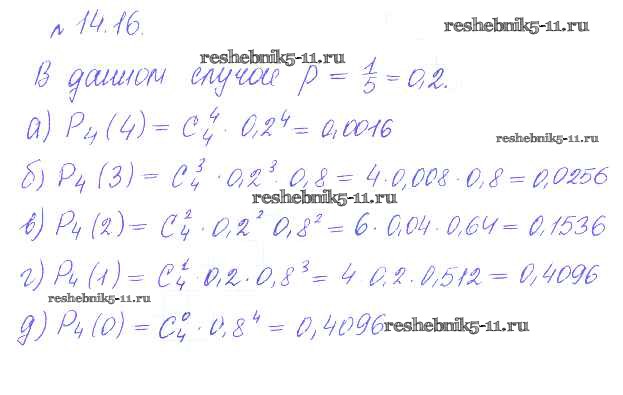 № 14.16.
reshebnik5-11.ru
reshebnik5-11.ru
В данном случае p = 1/5 = 0,2.
а) P₄(4) = C₄⁴ · 0,2⁴ = 0,0016
reshebnik5-11.ru
б) P₄(3) = C₄³ · 0,2³ · 0,8 = 4 · 0,008 · 0,8 = 0,0256
reshebnik5-11.ru
в) P₄(2) = C₄² · 0,2² 0,8² = 6 · 0,04 · 0,64 = 0,1536
г) P₄(1) = C₄¹ · 0,2 · 0,8³ = 4 0,2 · 0,512 = 0,4096
reshebnik5-11.ru
д) P₄(0) = C₄⁰ · 0,8⁴ = 0,4096
reshebnik5-11.ru